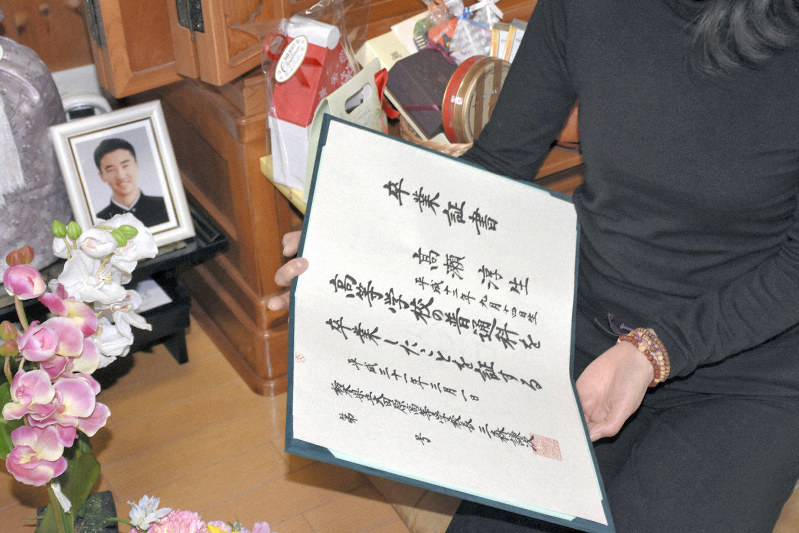 卒業証書
高瀬淳生
平成十三年九月十四日生
高等学校の普通科を
卒業したことを証する
平成三十一年三月一日
栃木県立大田原高等学校長 三森謙次
第　号